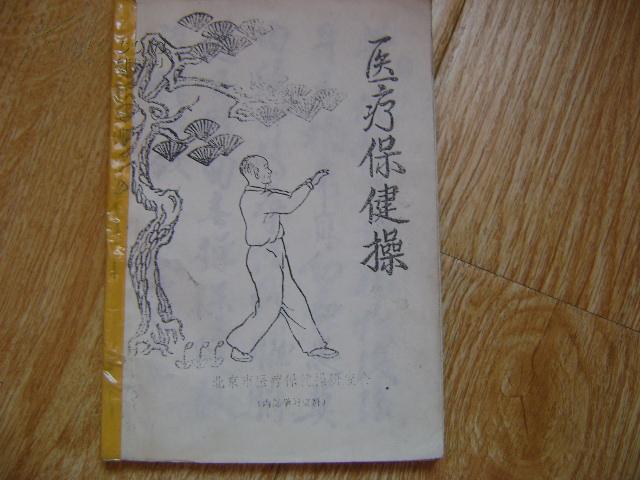 医疗保健操
北京市医疗保健操研究会
（内部学习资料）